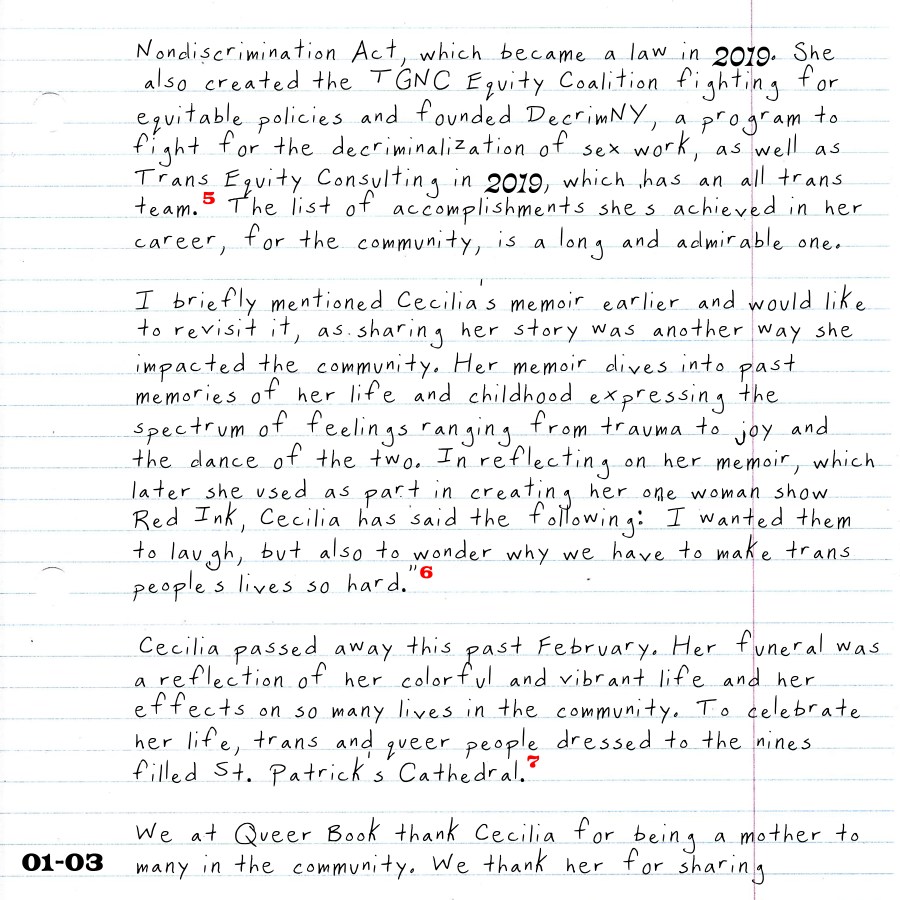 Nondiscrimination Act, which became a law in 2019. She
also created the TGNC Equity Coalition fighting for
equitable policies and founded DecrimNY, a program to
fight for the decriminalization of sex work, as well as
Trans Equity Consulting in 2019, which has an all trans
team.5 The list of accomplishments she s achieved in her
career, for the community, is a long and admirable one.
I briefly mentioned Cecilia's memoir earlier and would like
to revisit it, as sharing her story was another way she
impacted the community. Her memoir dives into past
memories of her life and childhood expressing the
spectrum of feelings ranging from trauma to joy and
the dance of the two. In reflecting on her memoir, which
later she used as part in creating her one woman show
Red Ink, Cecilia has said the following: I wanted them
to laugh, but also to wonder why we have to make trans
people s lives so hard."6
Cecilia passed away this past February. Her funeral was
a reflection of her colorful and vibrant life and her
effects on so many lives in the community. To celebrate
her life, trans and queer people dressed to the nines
filled St. Patrick's Cathedral.7
We at Queer Book thank Cecilia for being a mother to
01-03 many in the community. We thank her for sharing